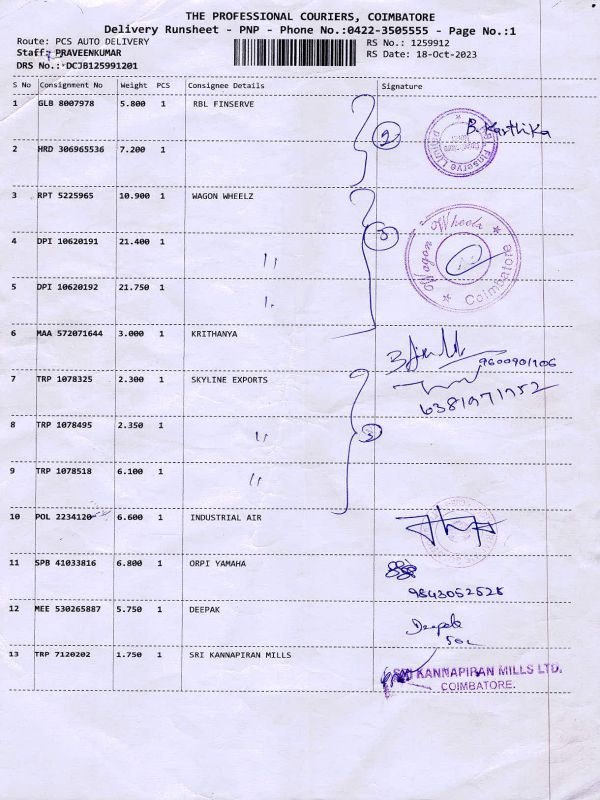 THE PROFESSIONAL COURIERS, COIMBATORE
Delivery Runsheet - PNP - Phone No.:0422-3505555 - Page No.:1
Route: PCS AUTO DELIVERY RS No.: 1259912
Staff: PRAVEENKUMAR RS Date: 18-Oct-2023
DRS No.: DCJB125991201
S No Consignment No Weight PCS Consignee Details Signature
1 GLB 8007978 5.800 1 RBL FINSERVE
2 B. Karthika
2 HRD 306965536 7.200 1
3 RPT 5225965 10.900 1 WAGON WHEELZ
Wagon Wheelz
Coimbatore
4 DPI 10620191 21.400 1 "
5 DPI 10620192 21.750 1 "
6 MAA 572071644 3.000 1 KRITHANYA
9600901706
7 TRP 1078325 2.300 1 SKYLINE EXPORTS
6381971752
8 TRP 1078495 2.350 1 "
3
9 TRP 1078518 6.100 1 "
10 POL 2234120 6.600 1 INDUSTRIAL AIR
11 SPB 41033816 6.800 1 ORPI YAMAHA
9843052525
12 MEE 530265887 5.750 1 DEEPAK
Deepak
13 TRP 7120202 1.750 1 SRI KANNAPIRAN MILLS
SRI KANNAPIRAN MILLS LTD.
COIMBATORE.